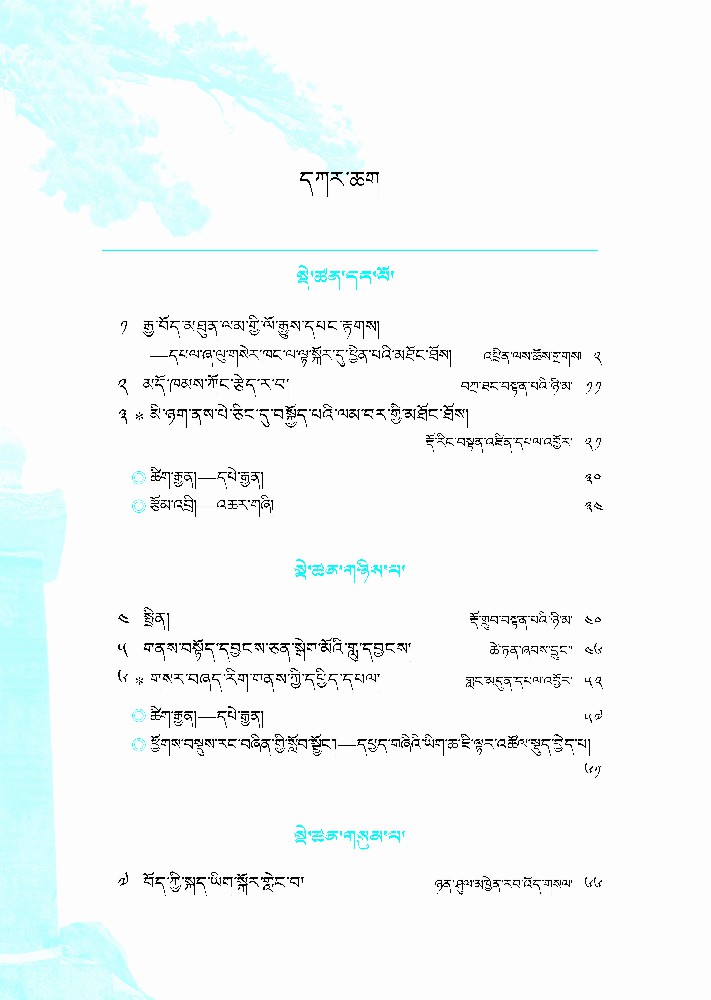 དཀར་ཆག
སྡེ་ཚན་དང་པོ།
༡ རྒྱ་བོད་མཐུན་ལམ་གྱི་ལོ་རྒྱུས་དཔང་རྟགས།
—དཔལ་ཞ་ལུ་གསེར་ཁང་ལ་ལྟ་སྐོར་དུ་ཕྱིན་པའི་མཐོང་ཐོས། འཕྲིན་ལས་ཆོས་གྲགས། ༢
༢ མདོ་ཁམས་ཀོང་རྩེད་ར་བ་ བཀྲ་ཐང་བསྟན་པའི་ཉི་མ་ ༡༡
༣ * མི་ཉག་ནས་པེ་ཅིང་དུ་བསྐྱོད་པའི་ལམ་བར་གྱི་མཐོང་ཐོས།
རྡོ་རིང་བསྟན་འཛིན་དཔལ་འབྱོར་ ༢༡
ཚིག་རྒྱན།—དཔེ་རྒྱན། ༣༠
རྩོམ་འབྲི། — འཆར་གཞི། ༣༤
སྡེ་ཚན་གཉིས་པ་
༤ སྤྲིན། རྡོ་གྲུབ་བསྟན་པའི་ཉི་མ་ ༤༠
༥ གནས་བསྟོད་དབྱངས་ཅན་སྒེག་མོའི་གླུ་དབྱངས་ ཚེ་ཏན་ཞབས་དྲུང་ ༤༦
༦ * གསར་བཞད་རིག་གནས་ཀྱི་དཔྱིད་དཔལ་ གླང་མདུན་དཔལ་འབྱོར་ ༥༢
ཚིག་རྒྱན།—དཔེ་རྒྱན། ༥༧
ཕྱོགས་བསྡུས་རང་བཞིན་གྱི་སློབ་སྦྱོང་།—དཔྱད་གཞིའི་ཡིག་ཆ་ཇི་ལྟར་འཚོལ་སྡུད་བྱེད་པ།
༦༡
སྡེ་ཚན་གསུམ་པ་
༧ བོད་ཀྱི་སྐད་ཡིག་སྐོར་གླེང་བ་ ཉན་ཤུལ་མཁྱེན་རབ་འོད་གསལ་ ༦༦